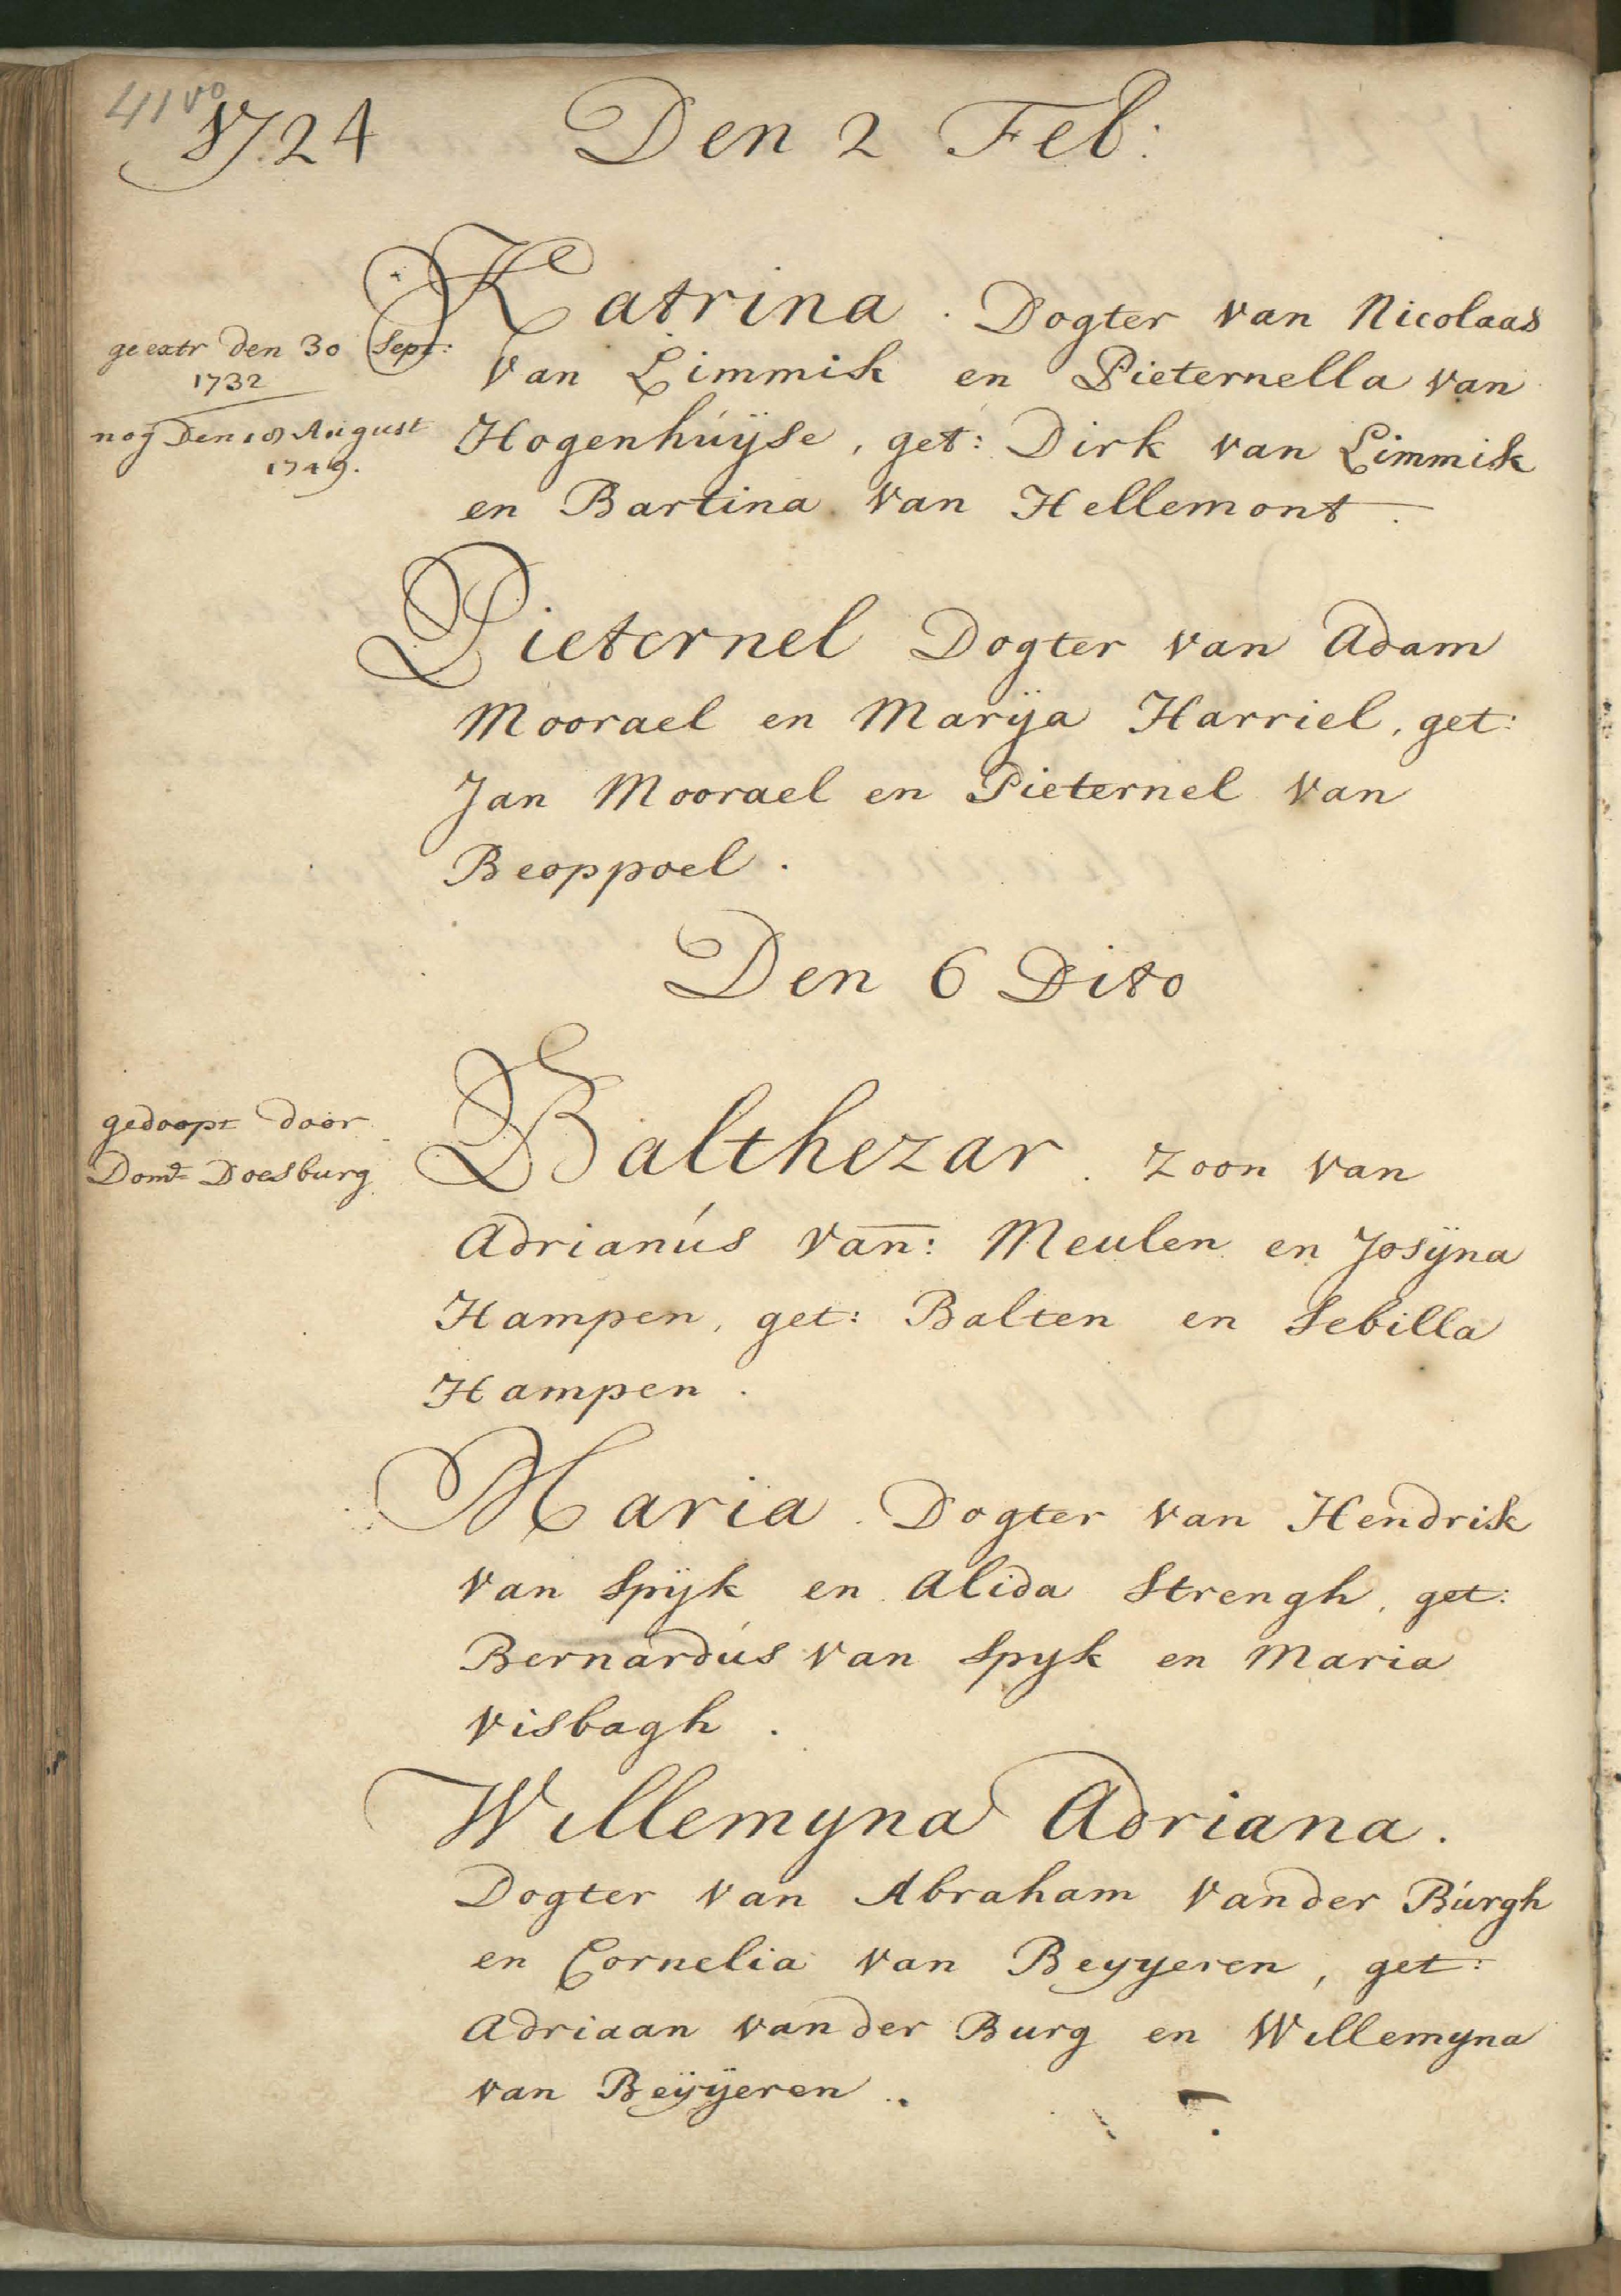 41 vo
1724 Den 2 Feb:
Katrina. Dogter van Nicolaas
geextr den 30 Sept:
1732
van Limmik en Pieternella van
nog Den 18 August
1749.
Hogenhúÿse, get: Dirk van Limmik
en Bartina van Hellemont.
Pieternel Dogter van Adam
Moorael en Marÿa Harriel, get:
Jan Moorael en Pieternel van
Beoppoel.
Den 6 Dito
gedoopt door
Domᵉ Doesburg
Balthezar. Zoon van
Adrianús van: Meulen en Josÿna
Hampen, get: Balten en Sebilla
Hampen.
Maria. Dogter van Hendrik
van Spÿk en Alida Strengh, get:
Bernardús van Spyk en Maria
Visbagh.
Willemyna Adriana.
Dogter van Abraham vander Búrgh
en Cornelia van Beyyeren, get:
Adriaan vander Burg en Willemyna
van Beÿÿeren.